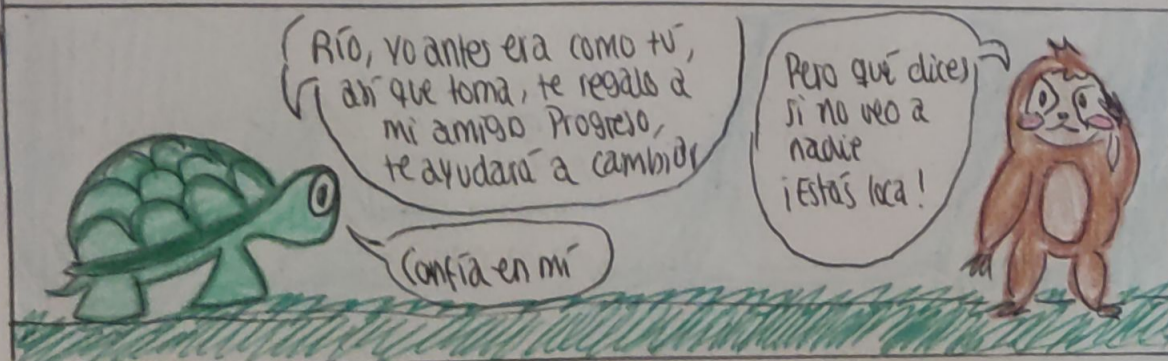 Río, yo antes era como tú,
así que toma, te regalo a
mi amigo Progreso,
te ayudará a cambiar
Confía en mí
Pero qué dices,
si no veo a
nadie
¡Estás loca!